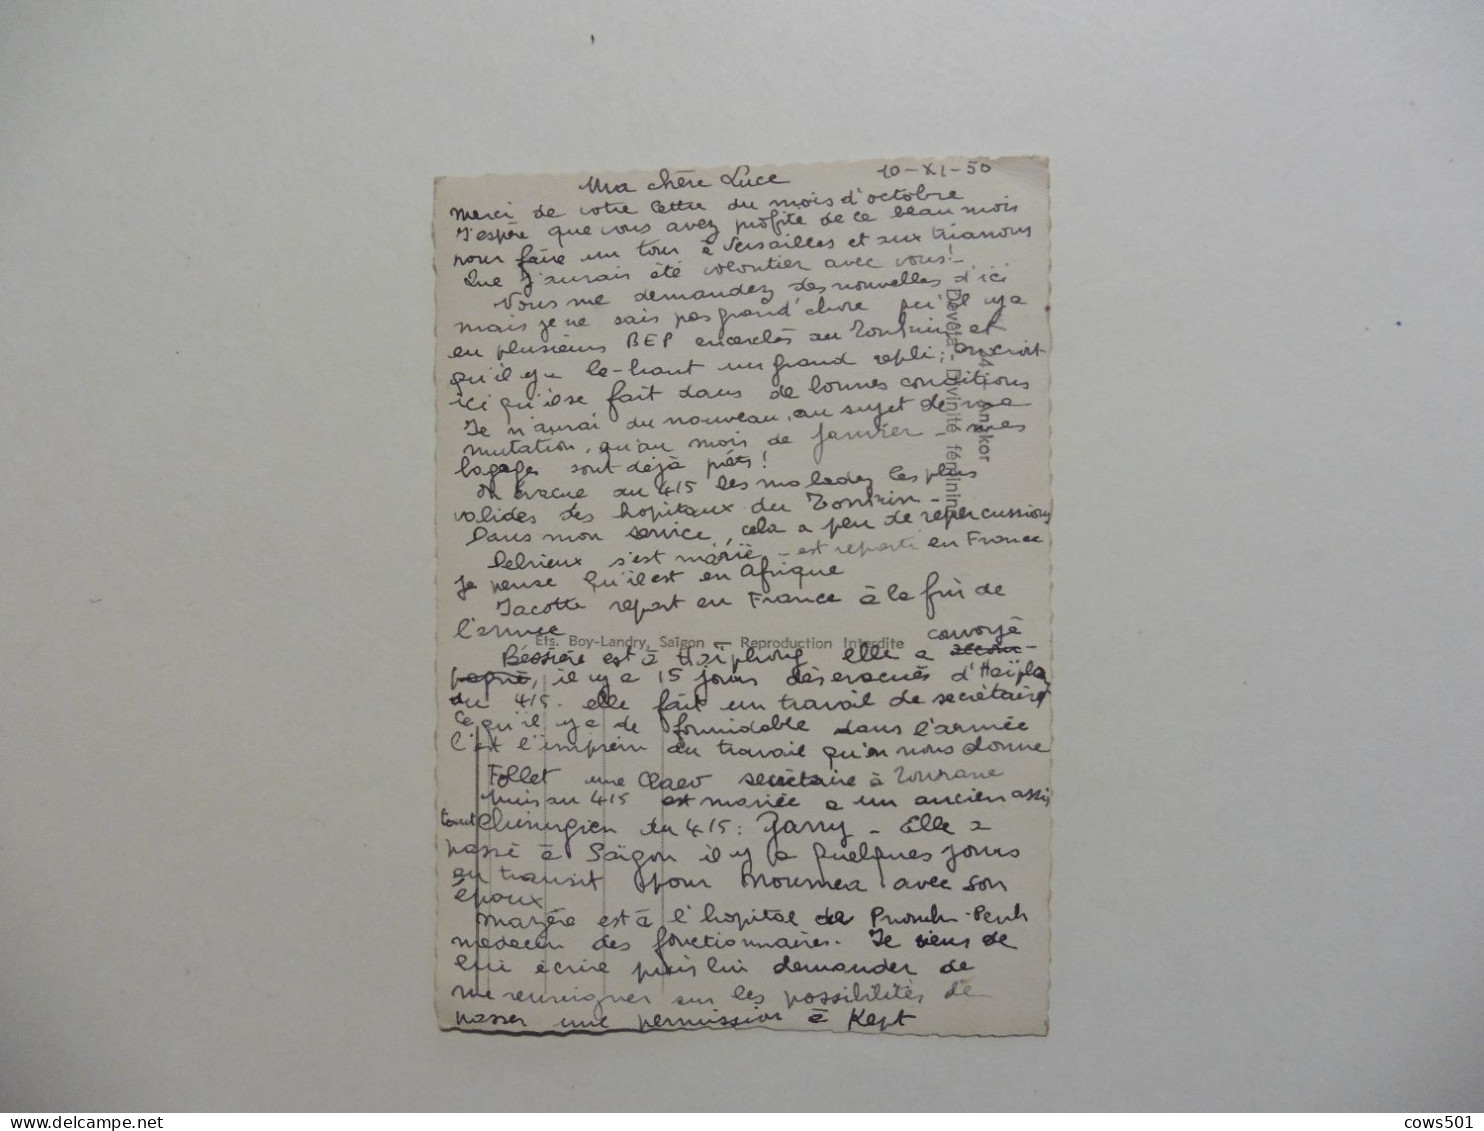 10-XI-50
Ma chère Luce
Merci de votre lettre du mois d'octobre
J'espère que vous avez profité de ce beau mois
pour faire un tour à Versailles et aux trianons
Que j'aurais été volontier avec vous!
Vous me demandez des nouvelles d'ici
mais je ne sais pas grand'chose qu'il y a
eu plusieurs BEP encerclés au Tonkin et
qu'il y a la-haut un grand repli; on croit
ici qu'il se fait dans de bonnes conditions
Je n'aurai du nouveau, au sujet de ma
mutation, qu'au mois de janvier - mes
bagages sont déjà prêts!
On évacue au 415 les malades les plus
valides des hopitaux du Tonkin -
Dans mon service, cela a peu de repercussions
Delrieux s'est marié - est reparti en France
Je pense qu'il est en Afrique
Jacotte repart en France à la fin de
l'année
Bessière est à Haïphong elle a convoyé
il y a 15 jours des evacués d'Haïpho
du 415. elle fait un travail de secrétaire
Ce qu'il y a de formidable dans l'armée
C'est l'imprévu du travail qu'on nous donne
Follet une secrétaire à Tourane
puis au 415 est mariée a un ancien assis
tant chirurgien du 415: Jarry - Elle a
passé à Saïgon il y a quelques jours
en transit pour Noumea avec son
époux
Mazère est à l'hopital de Pnomh-Penh
médecin des fonctionnaires. Je viens de
lui écrire puis lui demander de
me renseigner sur les possibilités de
passer une permission à Kept
Ets. Boy-Landry, Saïgon — Reproduction Interdite
Angkor
Devata - Divinité féminine
cows501